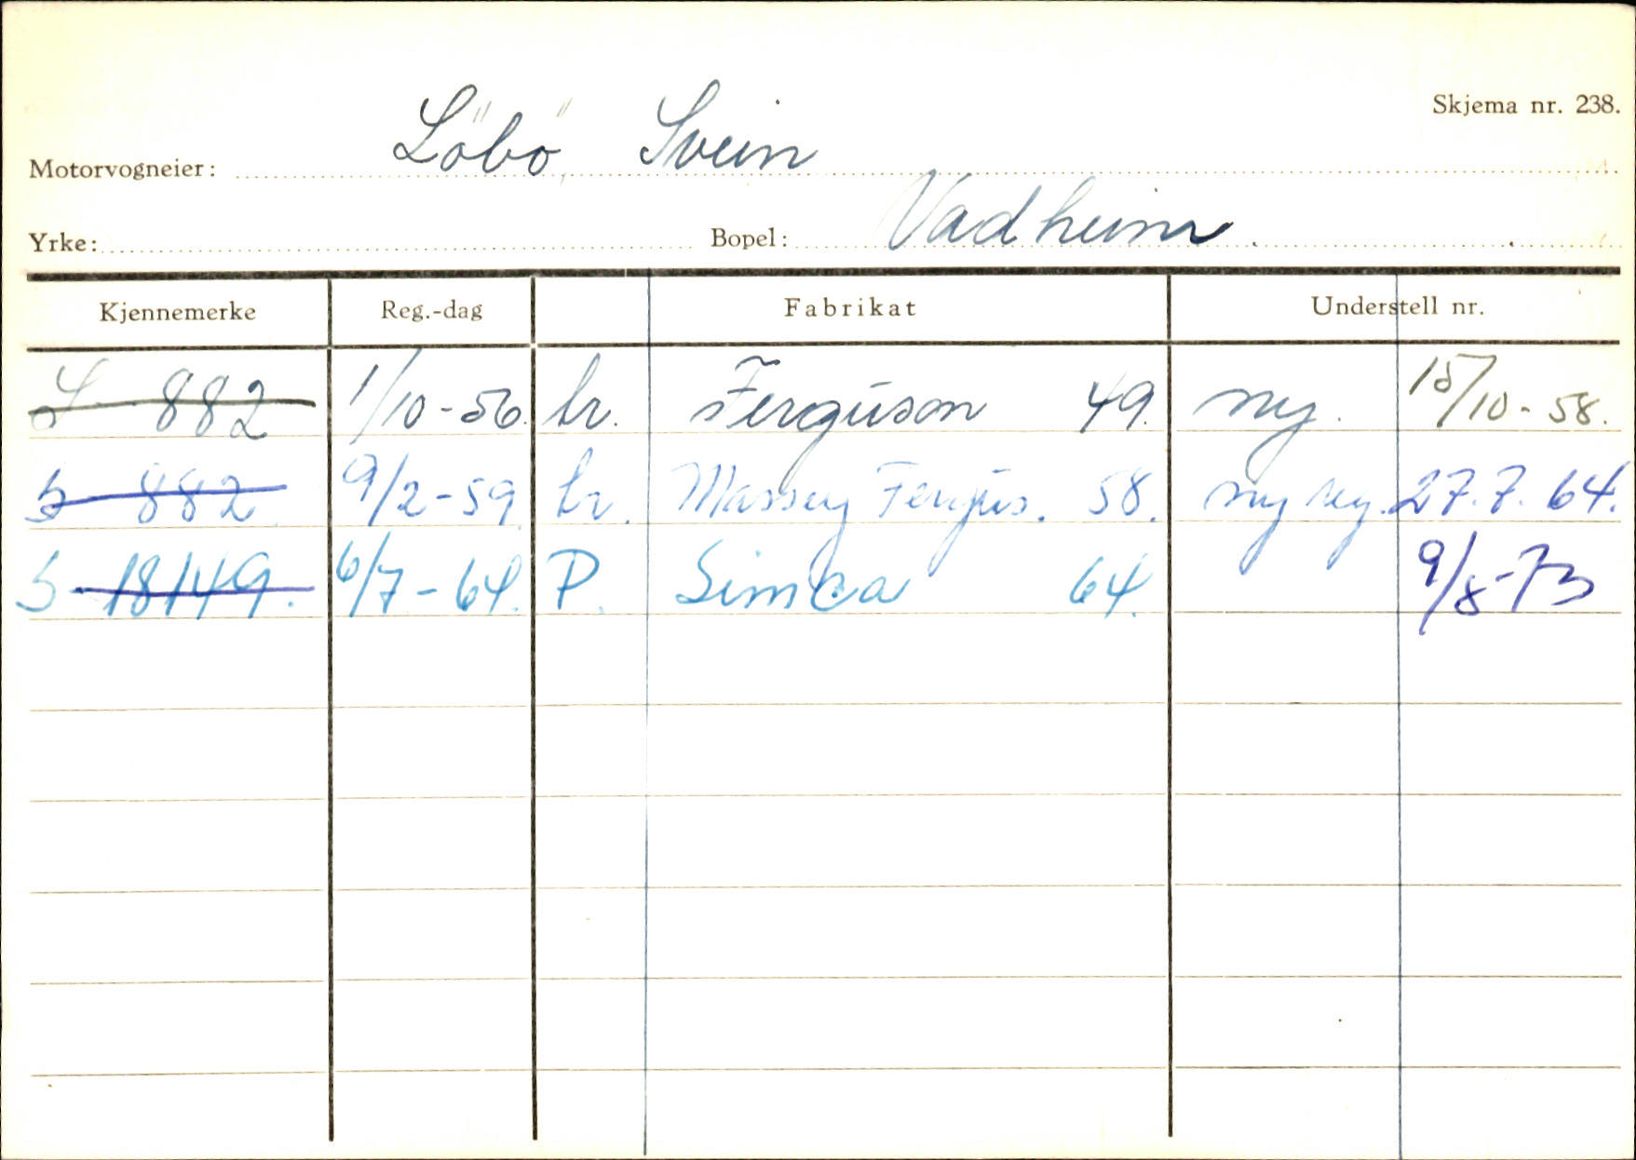 Skjema nr. 238.
Motorvogneier: Löbö, Svein
Yrke: Bopel: Vadheim.
Kjennemerke Reg.-dag Fabrikat Understell nr.
S 882 1/10-56. tr. Ferguson 49. ny. 15/10-58.
S 882 9/2-59. tr. Massey Fergus. 58. ny reg. 27.7.64.
S-18149. 6/7-64. P. Simca 64. 9/8-73